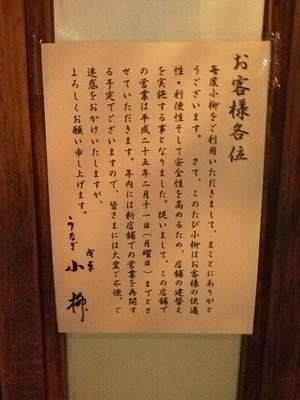 お客様各位
毎度小柳をご利用いただきまして、まことにありがと
うございます。 さて、このたび小柳はお客様の快適
性・利便性そして安全性を高めるため、店舗の建替え
を実施する事となりました。従いまして、この店舗で
の営業は平成二十五年二月十一日(月曜日)までとさ
せていただきます。年内には新店舗での営業を再開す
る予定でございますので、皆さまには大変ご不便、ご
迷惑をおかけいたしますが、
よろしくお願い申し上げます。
浅草
うなぎ 小柳